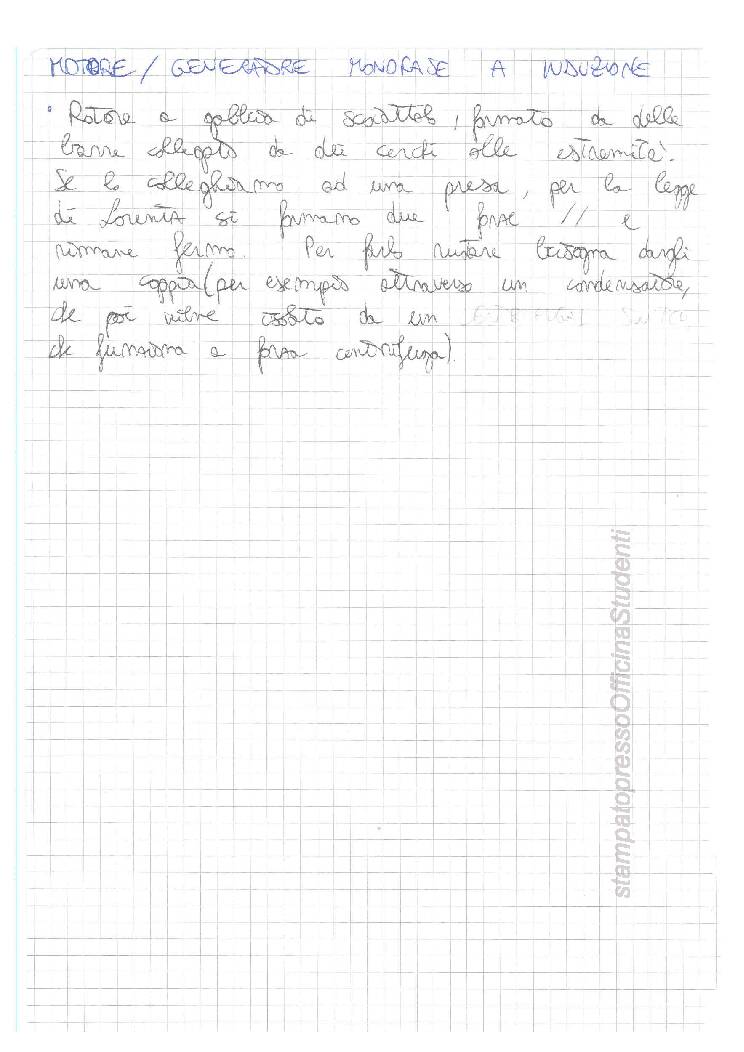 MOTORE / GENERATORE MONOFASE A INDUZIONE
• Rotore a gabbia di scoiattolo, formato da delle
barre collegate da dei cerchi alle estremità.
Se lo colleghiamo ad una presa, per la legge
di Lorentz si formano due forze // e
rimane fermo. Per farlo ruotare bisogna dargli
una coppia (per esempio attraverso un condensatore,
che poi viene da un
che funziona a forza centrifuga).
stampatopressoOfficinaStudenti